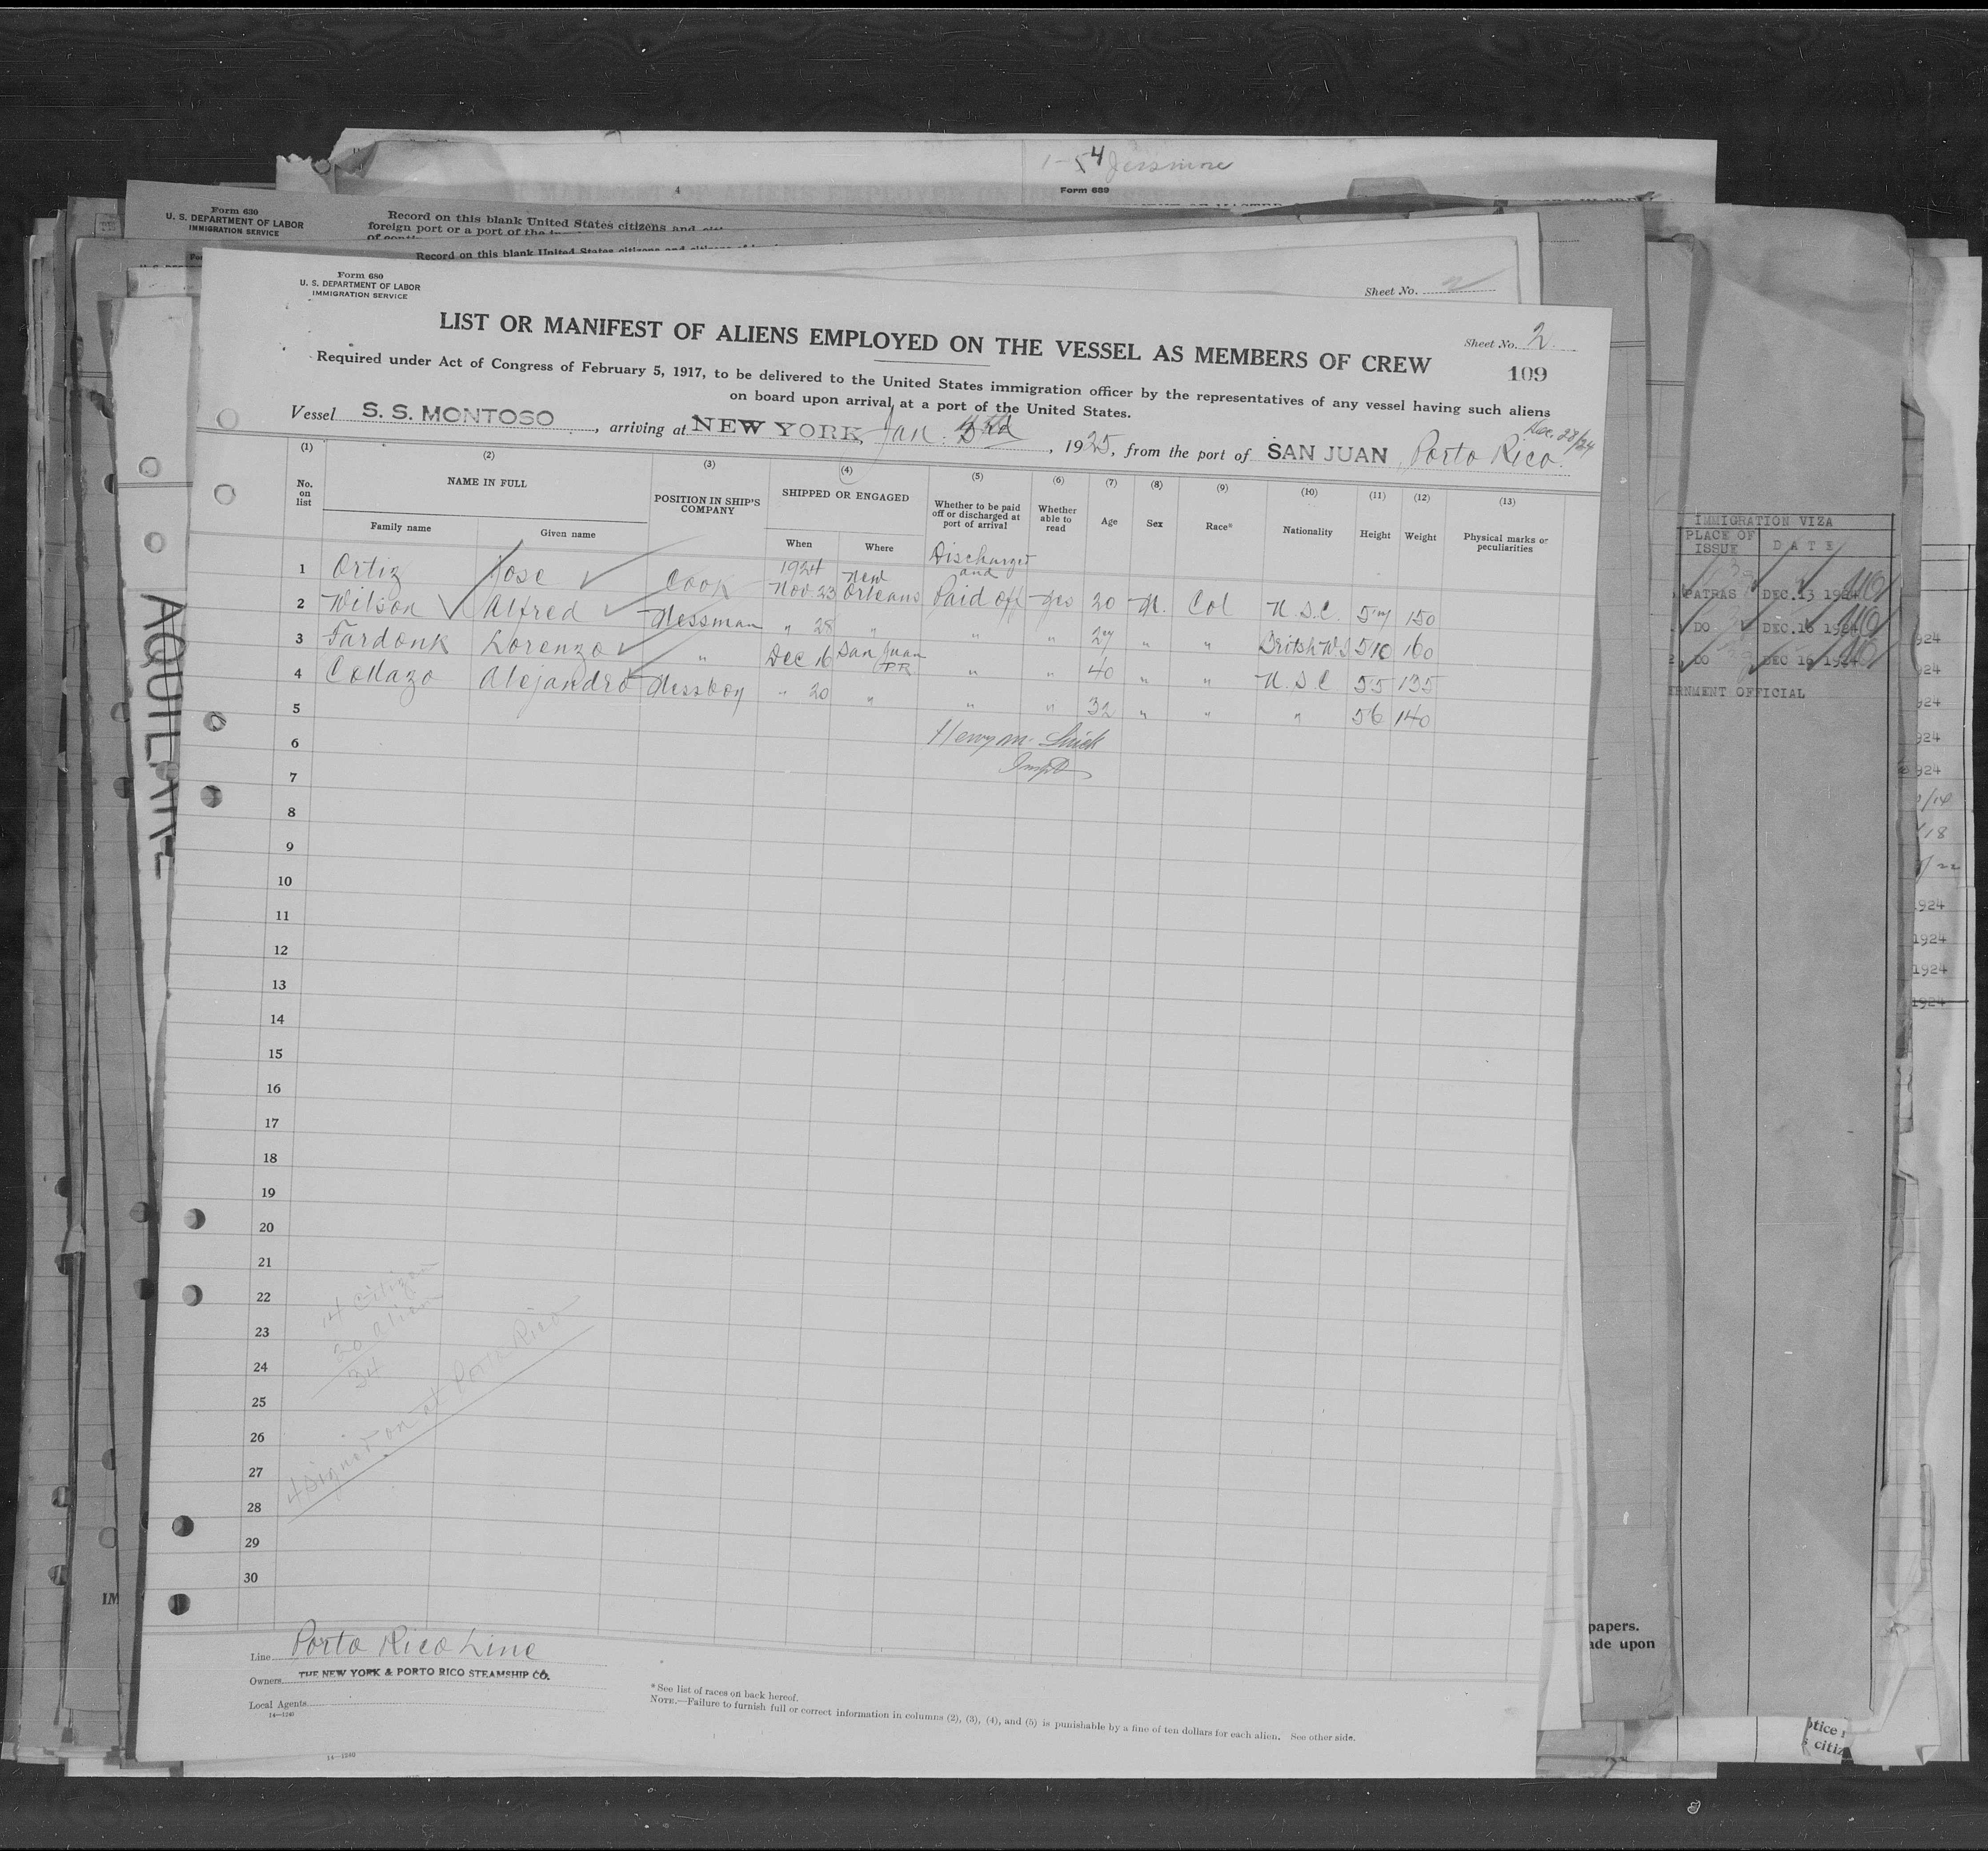 4
1-54
Form 689
Form 630
U. S. DEPARTMENT OF LABOR
IMMIGRATION SERVICE
Record on this blank United States citizens and
foreign port or a port of the
Record on this blank United States citizens and citizens of
Sheet No. 2
Form 680
U. S. DEPARTMENT OF LABOR
IMMIGRATION SERVICE
Sheet No. 2.
LIST OR MANIFEST OF ALIENS EMPLOYED ON THE VESSEL AS MEMBERS OF CREW
109
Required under Act of Congress of February 5, 1917, to be delivered to the United States immigration officer by the representatives of any vessel having such aliens
on board upon arrival at a port of the United States.
Dec. 28/24
Vessel S. S. MONTOSO, arriving at NEW YORK, Jan. , 1925, from the port of SAN JUAN Porto Rico.
(1) (2) (3) (4) (5) (6) (7) (8) (9) (10) (11) (12) (13)
No. on list NAME IN FULL POSITION IN SHIP'S COMPANY SHIPPED OR ENGAGED Whether to be paid off or discharged at port of arrival Whether able to read Age Sex Race* Nationality Height Weight Physical marks or peculiarities
Family name Given name When Where
1 Ortiz Jose Cook 1924 Nov. 23 New Orleans Discharged and Paid off Yes 20 M. Col U.S.C. 5 7 150
2 Wilson Alfred Messman " 28 " " " 27 " " British W.I 5 10 160
3 Fardonk Lorenzo " Dec 16 San Juan P.R. " " 40 " " U.S.C 5 5 135
4 Collazo Alejandro Messboy " 20 " " " 32 " " " 5 6 140
5
6 Henry M.
7 Inspt
8
9
10
11
12
13
14
15
16
17
18
19
20
21
22
23
24
25
26
27
28
29
30
14 Citizen
20 Alien
34
4 Signed on at Porto Rico
Line Porto Rico Line
Owners THE NEW YORK & PORTO RICO STEAMSHIP CO.
Local Agents
14—1240
* See list of races on back hereof.
NOTE.—Failure to furnish full or correct information in columns (2), (3), (4), and (5) is punishable by a fine of ten dollars for each alien. See other side.
14—1240
IMMIGRATION VIZA
PLACE OF ISSUE DATE
PATRAS DEC.13 1924
DO DEC.16 1924
DO DEC 16 1924
ERNMENT OFFICIAL
924
924
924
924
924
/18
1924
1924
1924
1924
papers.
ade upon
otice
citiz
IM